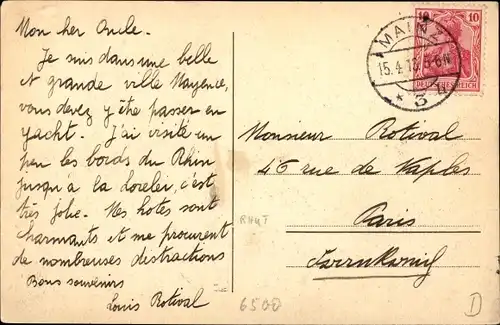 Mon her Oncle.
Je suis dans une belle
et grande ville Mayence,
vous devez y être passer en
yacht. J'ai visité un
peu les bords du Rhin
jusqu'à la Lorelei, c'est
très jolie. Mes hotes sont
charmants et me procurent
de nombreuses distractions
Bons souvenirs
Louis Rotival
10 10
DEUTSCHES REICH
MAINZ
15.4.13. 5-6N
* 3
Monsieur Rotival
46 rue de Naples
Paris
Frankreich
6500
D